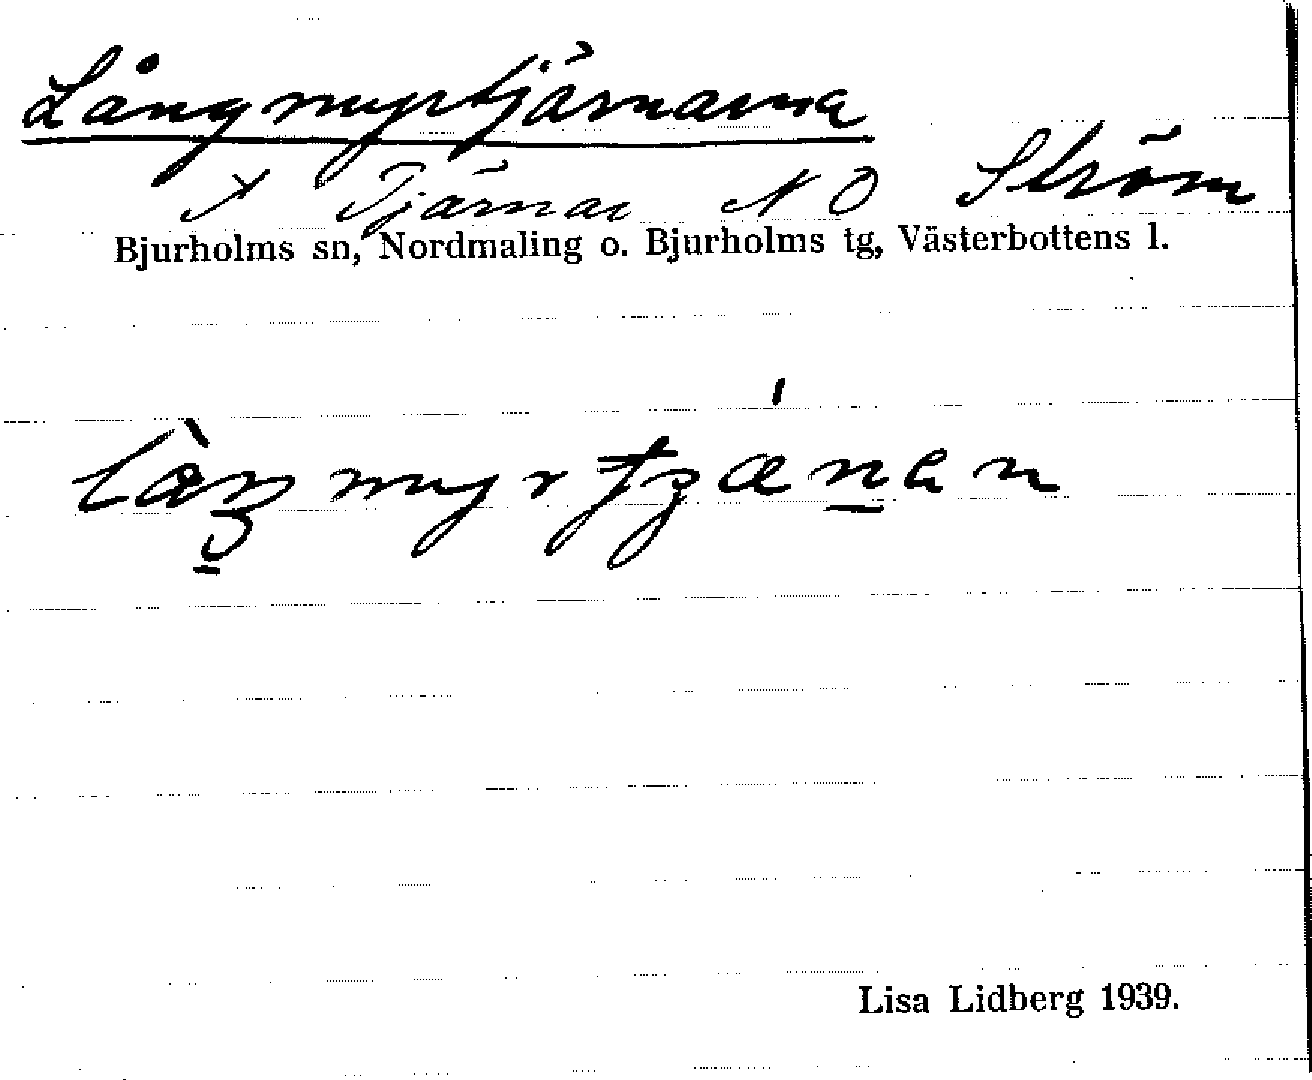 Långmyrtjärnarna
X Tjärnar N O Ström
Bjurholms sn, Nordmaling o. Bjurholms tg, Västerbottens l.
Lisa Lidberg 1939.